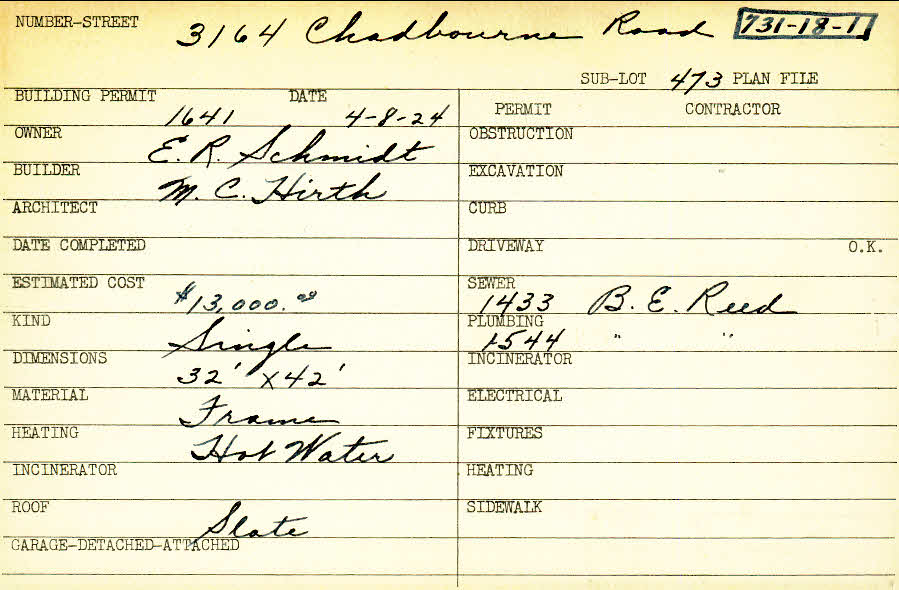 NUMBER-STREET 3164 Chadbourne Road 731-18-1
SUB-LOT 473 PLAN FILE
BUILDING PERMIT DATE
1641 4-8-24
PERMIT CONTRACTOR
OWNER E. R. Schmidt
OBSTRUCTION
BUILDER M. C. Hirth
EXCAVATION
ARCHITECT
CURB
DATE COMPLETED
DRIVEWAY O.K.
ESTIMATED COST $13,000.00
SEWER
1433 B. E. Reed
KIND Single
PLUMBING
1544 " "
DIMENSIONS 32' x 42'
INCINERATOR
MATERIAL Frame
ELECTRICAL
HEATING Hot Water
FIXTURES
INCINERATOR
HEATING
ROOF Slate
SIDEWALK
GARAGE-DETACHED-ATTACHED